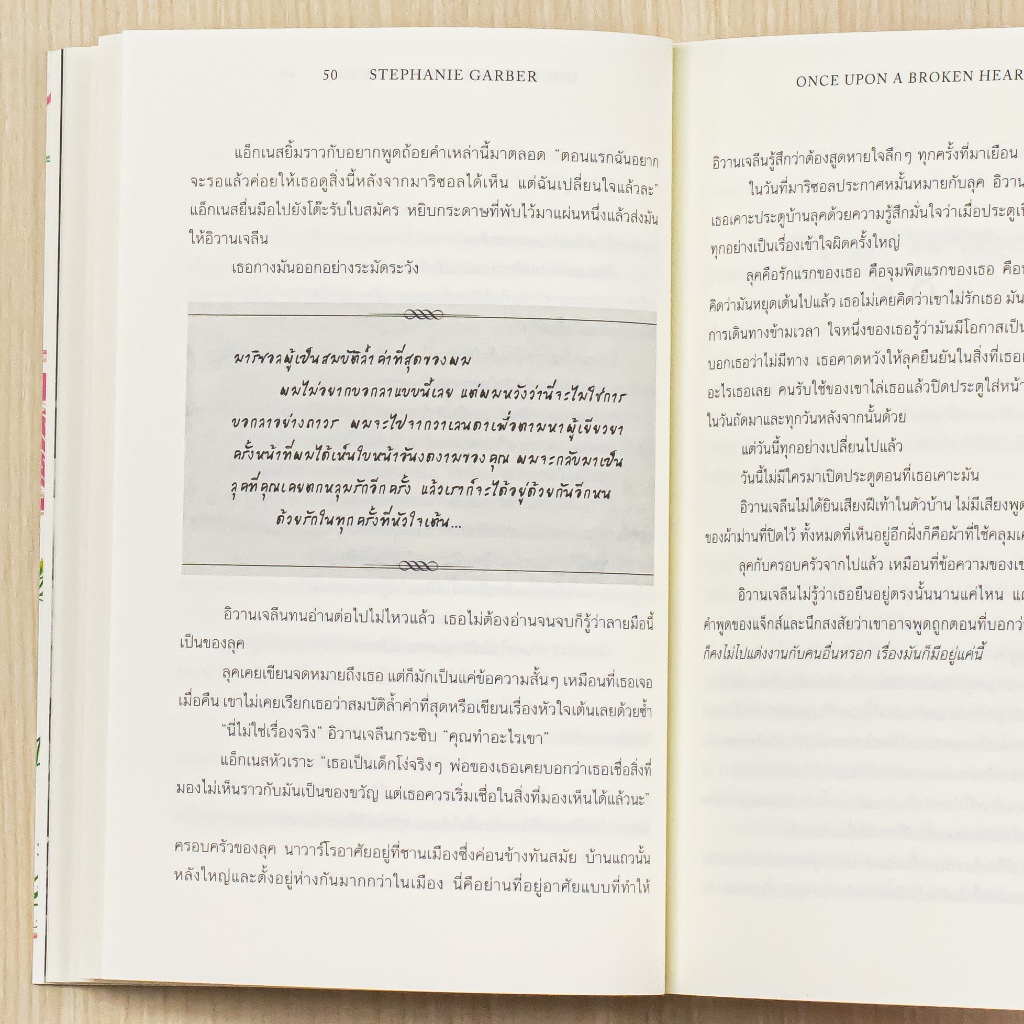 50 STEPHANIE GARBER
แอ็กเนสยิ้มราวกับอยากพูดถ้อยคำเหล่านี้มาตลอด “ตอนแรกฉันอยาก
จะรอแล้วค่อยให้เธอดูสิ่งนี้หลังจากมาริซอลได้เห็น แต่ฉันเปลี่ยนใจแล้วละ”
แอ็กเนสยื่นมือไปยังโต๊ะรับใบสมัคร หยิบกระดาษที่พับไว้มาแผ่นหนึ่งแล้วส่งมัน
ให้อิวานเจลีน
เธอกางมันออกอย่างระมัดระวัง
มาริซอลผู้เป็นสมบัติล้ำค่าที่สุดของผม
ผมไม่อยากบอกลาแบบนี้เลย แต่ผมหวังว่านี่จะไม่ใช่การ
บอกลาอย่างถาวร ผมจะไปจากวาเลนดาเพื่อตามหาผู้เยียวยา
ครั้งหน้าที่ผมได้เห็นใบหน้าอันงดงามของคุณ ผมจะกลับมาเป็น
ลุคที่คุณเคยตกหลุมรักอีกครั้ง แล้วเราก็จะได้อยู่ด้วยกันอีกหน
ด้วยรักในทุกครั้งที่หัวใจเต้น...
อิวานเจลีนทนอ่านต่อไปไม่ไหวแล้ว เธอไม่ต้องอ่านจนจบก็รู้ว่าลายมือนี้
เป็นของลุค
ลุคเคยเขียนจดหมายถึงเธอ แต่ก็มักเป็นแค่ข้อความสั้นๆ เหมือนที่เธอเจอ
เมื่อคืน เขาไม่เคยเรียกเธอว่าสมบัติล้ำค่าที่สุดหรือเขียนเรื่องหัวใจเต้นเลยด้วยซ้ำ
“นี่ไม่ใช่เรื่องจริง” อิวานเจลีนกระซิบ “คุณทำอะไรเขา”
แอ็กเนสหัวเราะ “เธอเป็นเด็กโง่จริงๆ พ่อของเธอเคยบอกว่าเธอเชื่อสิ่งที่
มองไม่เห็นราวกับมันเป็นของขวัญ แต่เธอควรเริ่มเชื่อในสิ่งที่มองเห็นได้แล้วนะ”
ครอบครัวของลุค นาวาร์โรอาศัยอยู่ที่ชานเมืองซึ่งค่อนข้างทันสมัย บ้านแถวนั้น
หลังใหญ่และตั้งอยู่ห่างกันมากกว่าในเมือง นี่คือย่านที่อยู่อาศัยแบบที่ทำให้
ONCE UPON A BROKEN HEAR
อิวานเจลีนรู้สึกว่าต้องสูดหายใจลึกๆ ทุกครั้งที่มาเยือน
ในวันที่มาริซอลประกาศหมั้นหมายกับลุค อิวาน
เธอเคาะประตูบ้านลุคด้วยความรู้สึกมั่นใจว่าเมื่อประตู
ทุกอย่างเป็นเรื่องเข้าใจผิดครั้งใหญ่
ลุคคือรักแรกของเธอ คือจุมพิตแรกของเธอ
คิดว่ามันหยุดเต้นไปแล้ว เธอไม่เคยคิดว่าเขาไม่รักเธอ มัน
การเดินทางข้ามเวลา ใจหนึ่งของเธอรู้ว่ามันมีโอกาสเป็น
บอกเธอว่าไม่มีทาง เธอคาดหวังให้ลุคยืนยันในสิ่งที่
อะไรเธอเลย คนรับใช้ของเขาไล่เธอแล้วปิดประตูใส่หน้า
ในวันถัดมาและทุกวันหลังจากนั้นด้วย
แต่วันนี้ทุกอย่างเปลี่ยนไปแล้ว
วันนี้ไม่มีใครมาเปิดประตูตอนที่เธอเคาะมัน
อิวานเจลีนไม่ได้ยินเสียงฝีเท้าในตัวบ้าน ไม่มีเสียงพูด
ของผ้าม่านที่ปิดไว้ ทั้งหมดที่เห็นอยู่อีกฝั่งก็คือผ้าที่ใช้คลุม
ลุคกับครอบครัวจากไปแล้ว เหมือนที่ข้อความของ
อิวานเจลีนไม่รู้ว่าเธอยืนอยู่ตรงนั้นนานแค่ไหน
คำพูดของแจ็กส์และนึกสงสัยว่าเขาอาจพูดถูกตอนที่บอก
ก็คงไม่ไปแต่งงานกับคนอื่นหรอก เรื่องมันก็มีอยู่แค่นี้